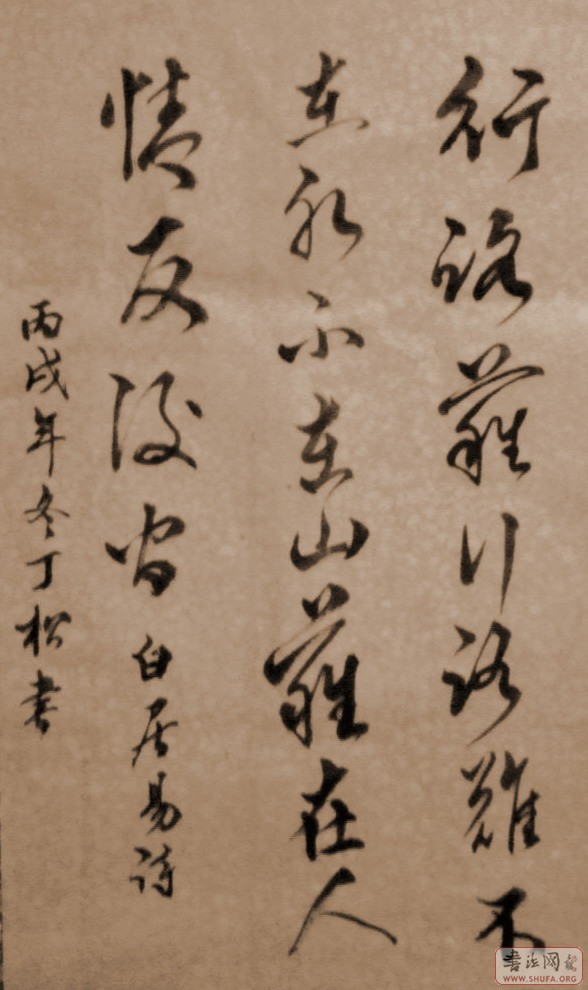 行路難行路難不
在水不在山難在人
情反復間白居易詩
丙戌年冬丁松書
書法网
WWW.SHUFA.ORG